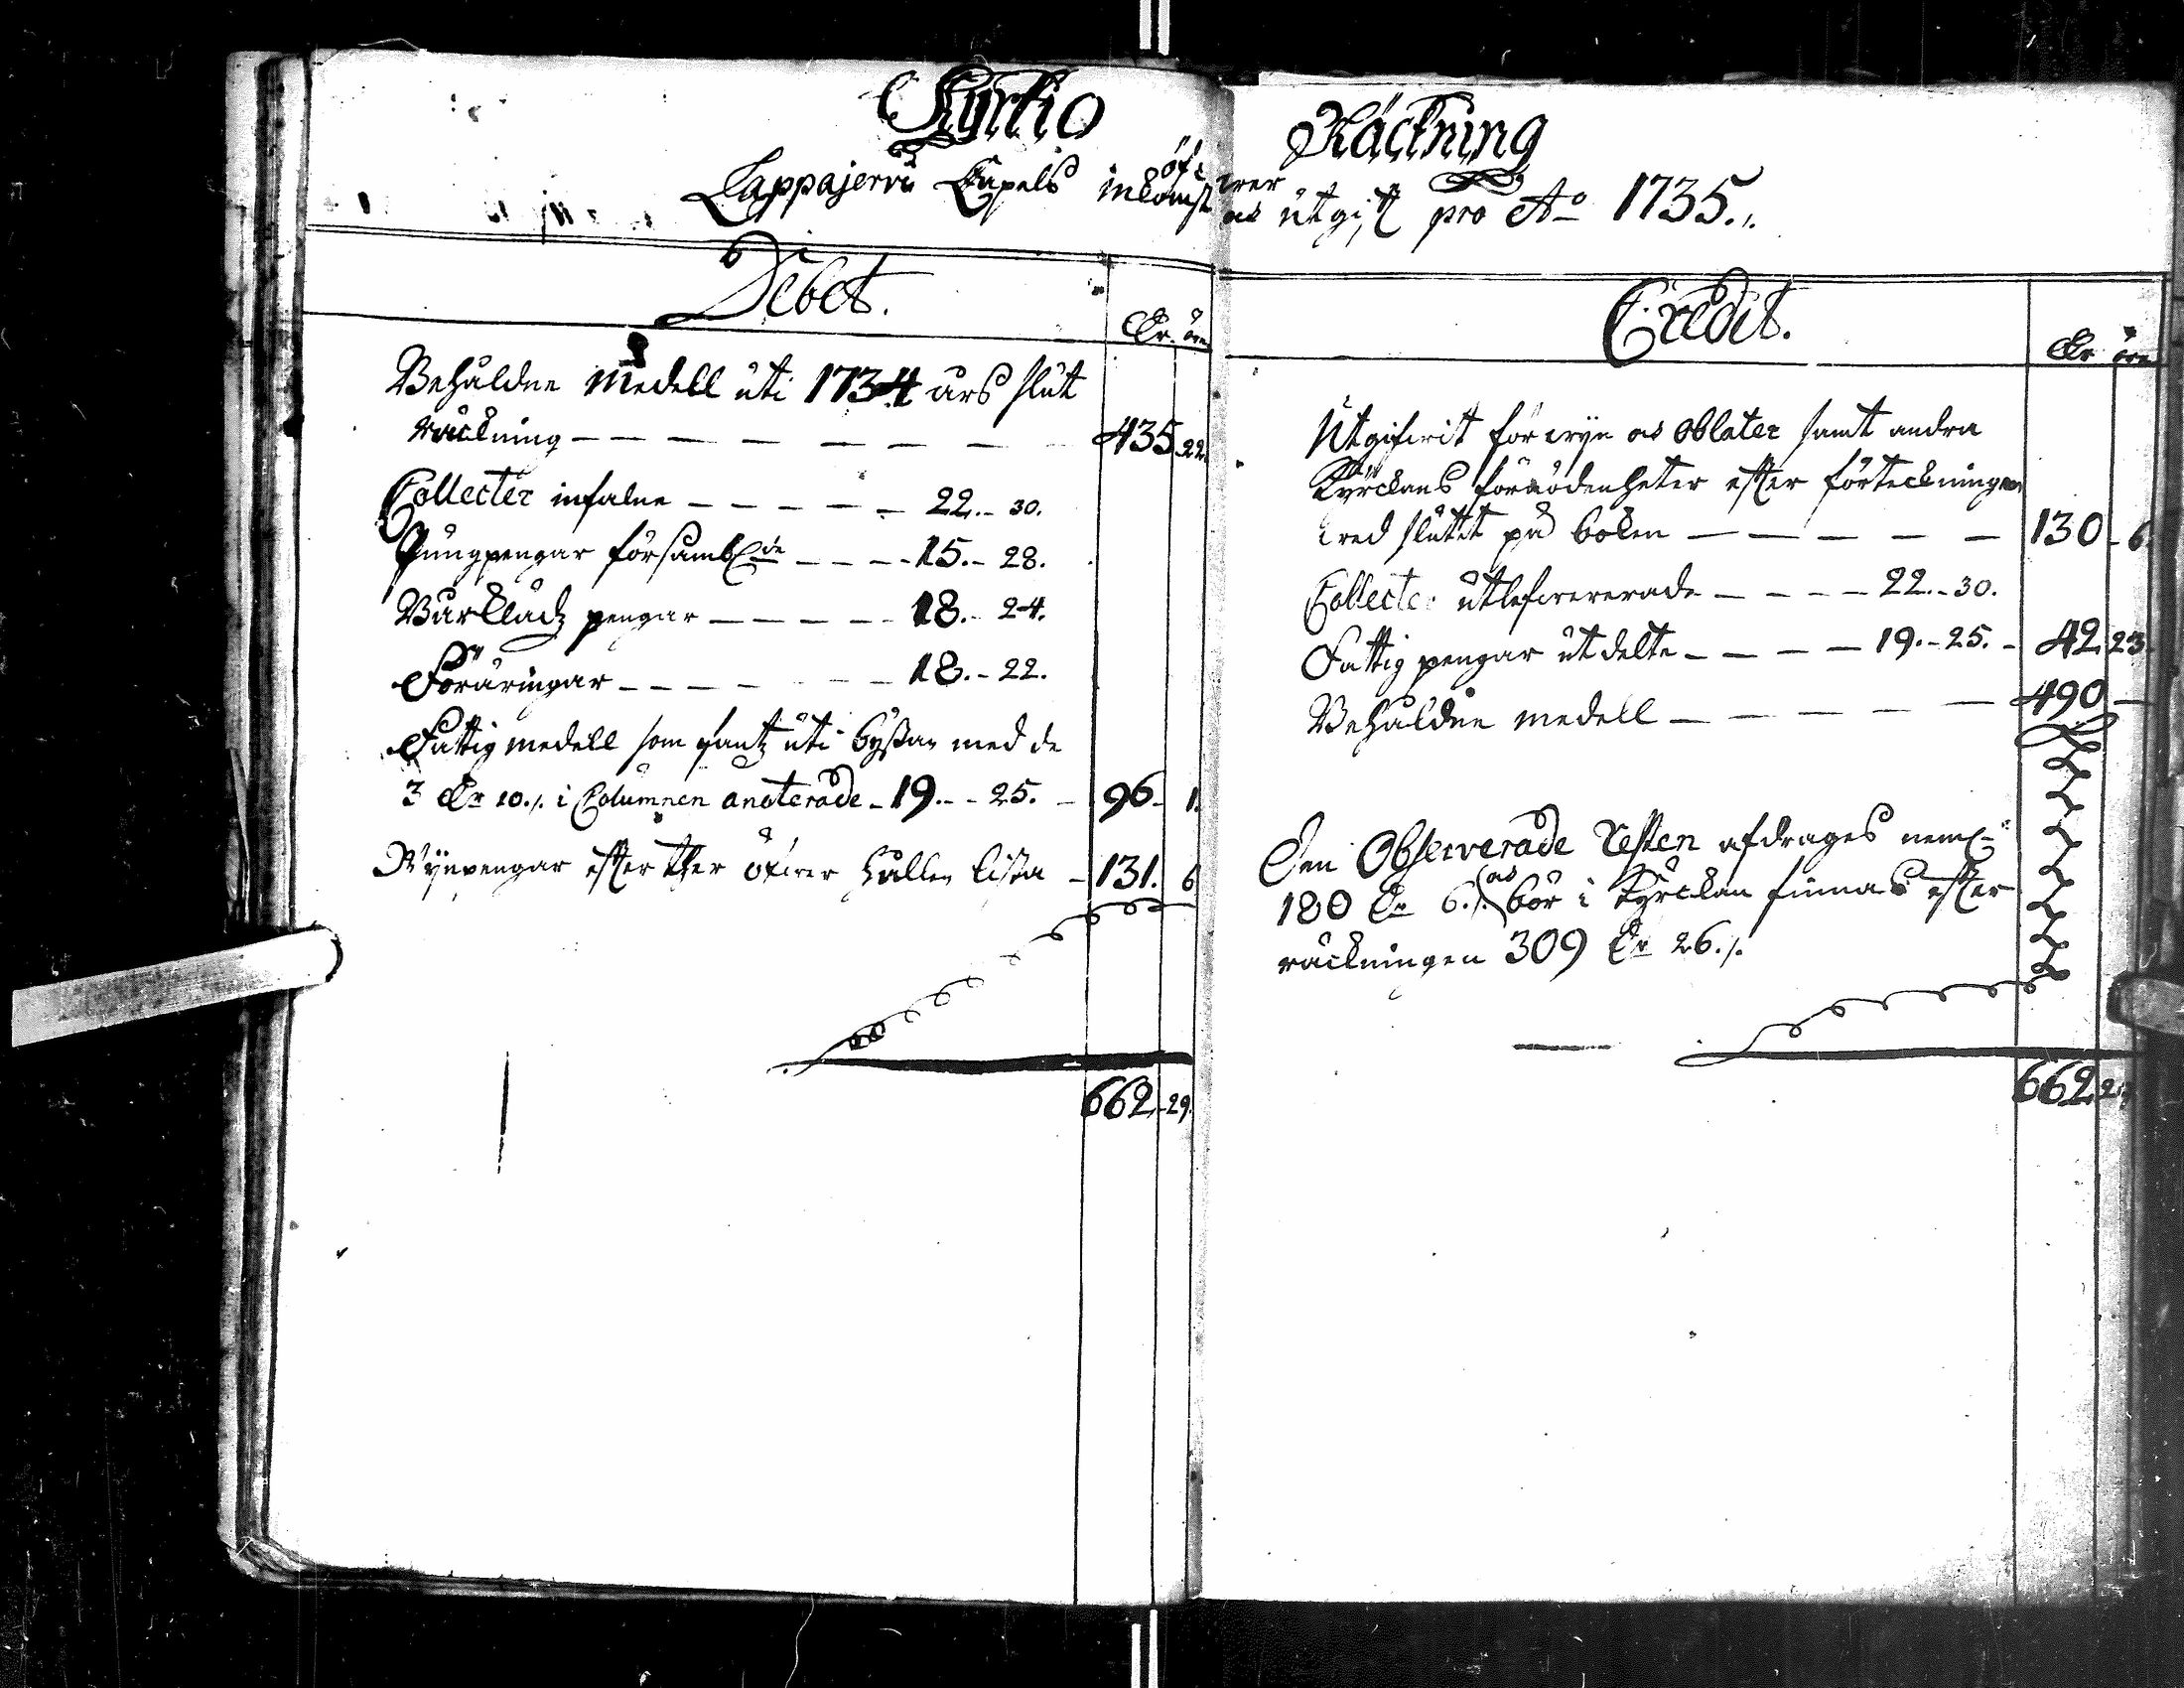 Kyrkio Räckning
öfwer
Lappajerwi Capels inkomst ock utgift pro Ao 1735.
Debet.
Dr. öre
Behåldne Medell uti 1734 års slut
räckning — — — — — — 435. 22.
Collecter infalne — — — — — 22.- 30.
Pungpengar försambl:de — — — 15.- 28.
Bårklädz pengar — — — — — 18.- 24.
Föräringar — — — — — 18.- 22.
Fattigmedell som fantz uti byssan med de
3 Dr 10./. i Columnen anoterade - 19.- - 25. - 96. 1.
Wijnpengar effter ther öfwer hållen lista - 131. 6
662.-29.
Credit.
Dr öre
Utgifwit för wijn och Oblater samt andra
Kyrckans förnödenheter effter förteckningen
wed slutet på boken — — — — — 130 - 6.
Collecter utlefwererade — — — — 22.- 30.
Fattigpengar utdelte — — — — 19.- 25. - 42 23.
Behåldne medell — — — — — 490 —
Den Observerade resten afdrages neml:
180 Dr 6./. och bör i Kyrckan finnas effter
räckningen 309 Dr 26./.
662. 29